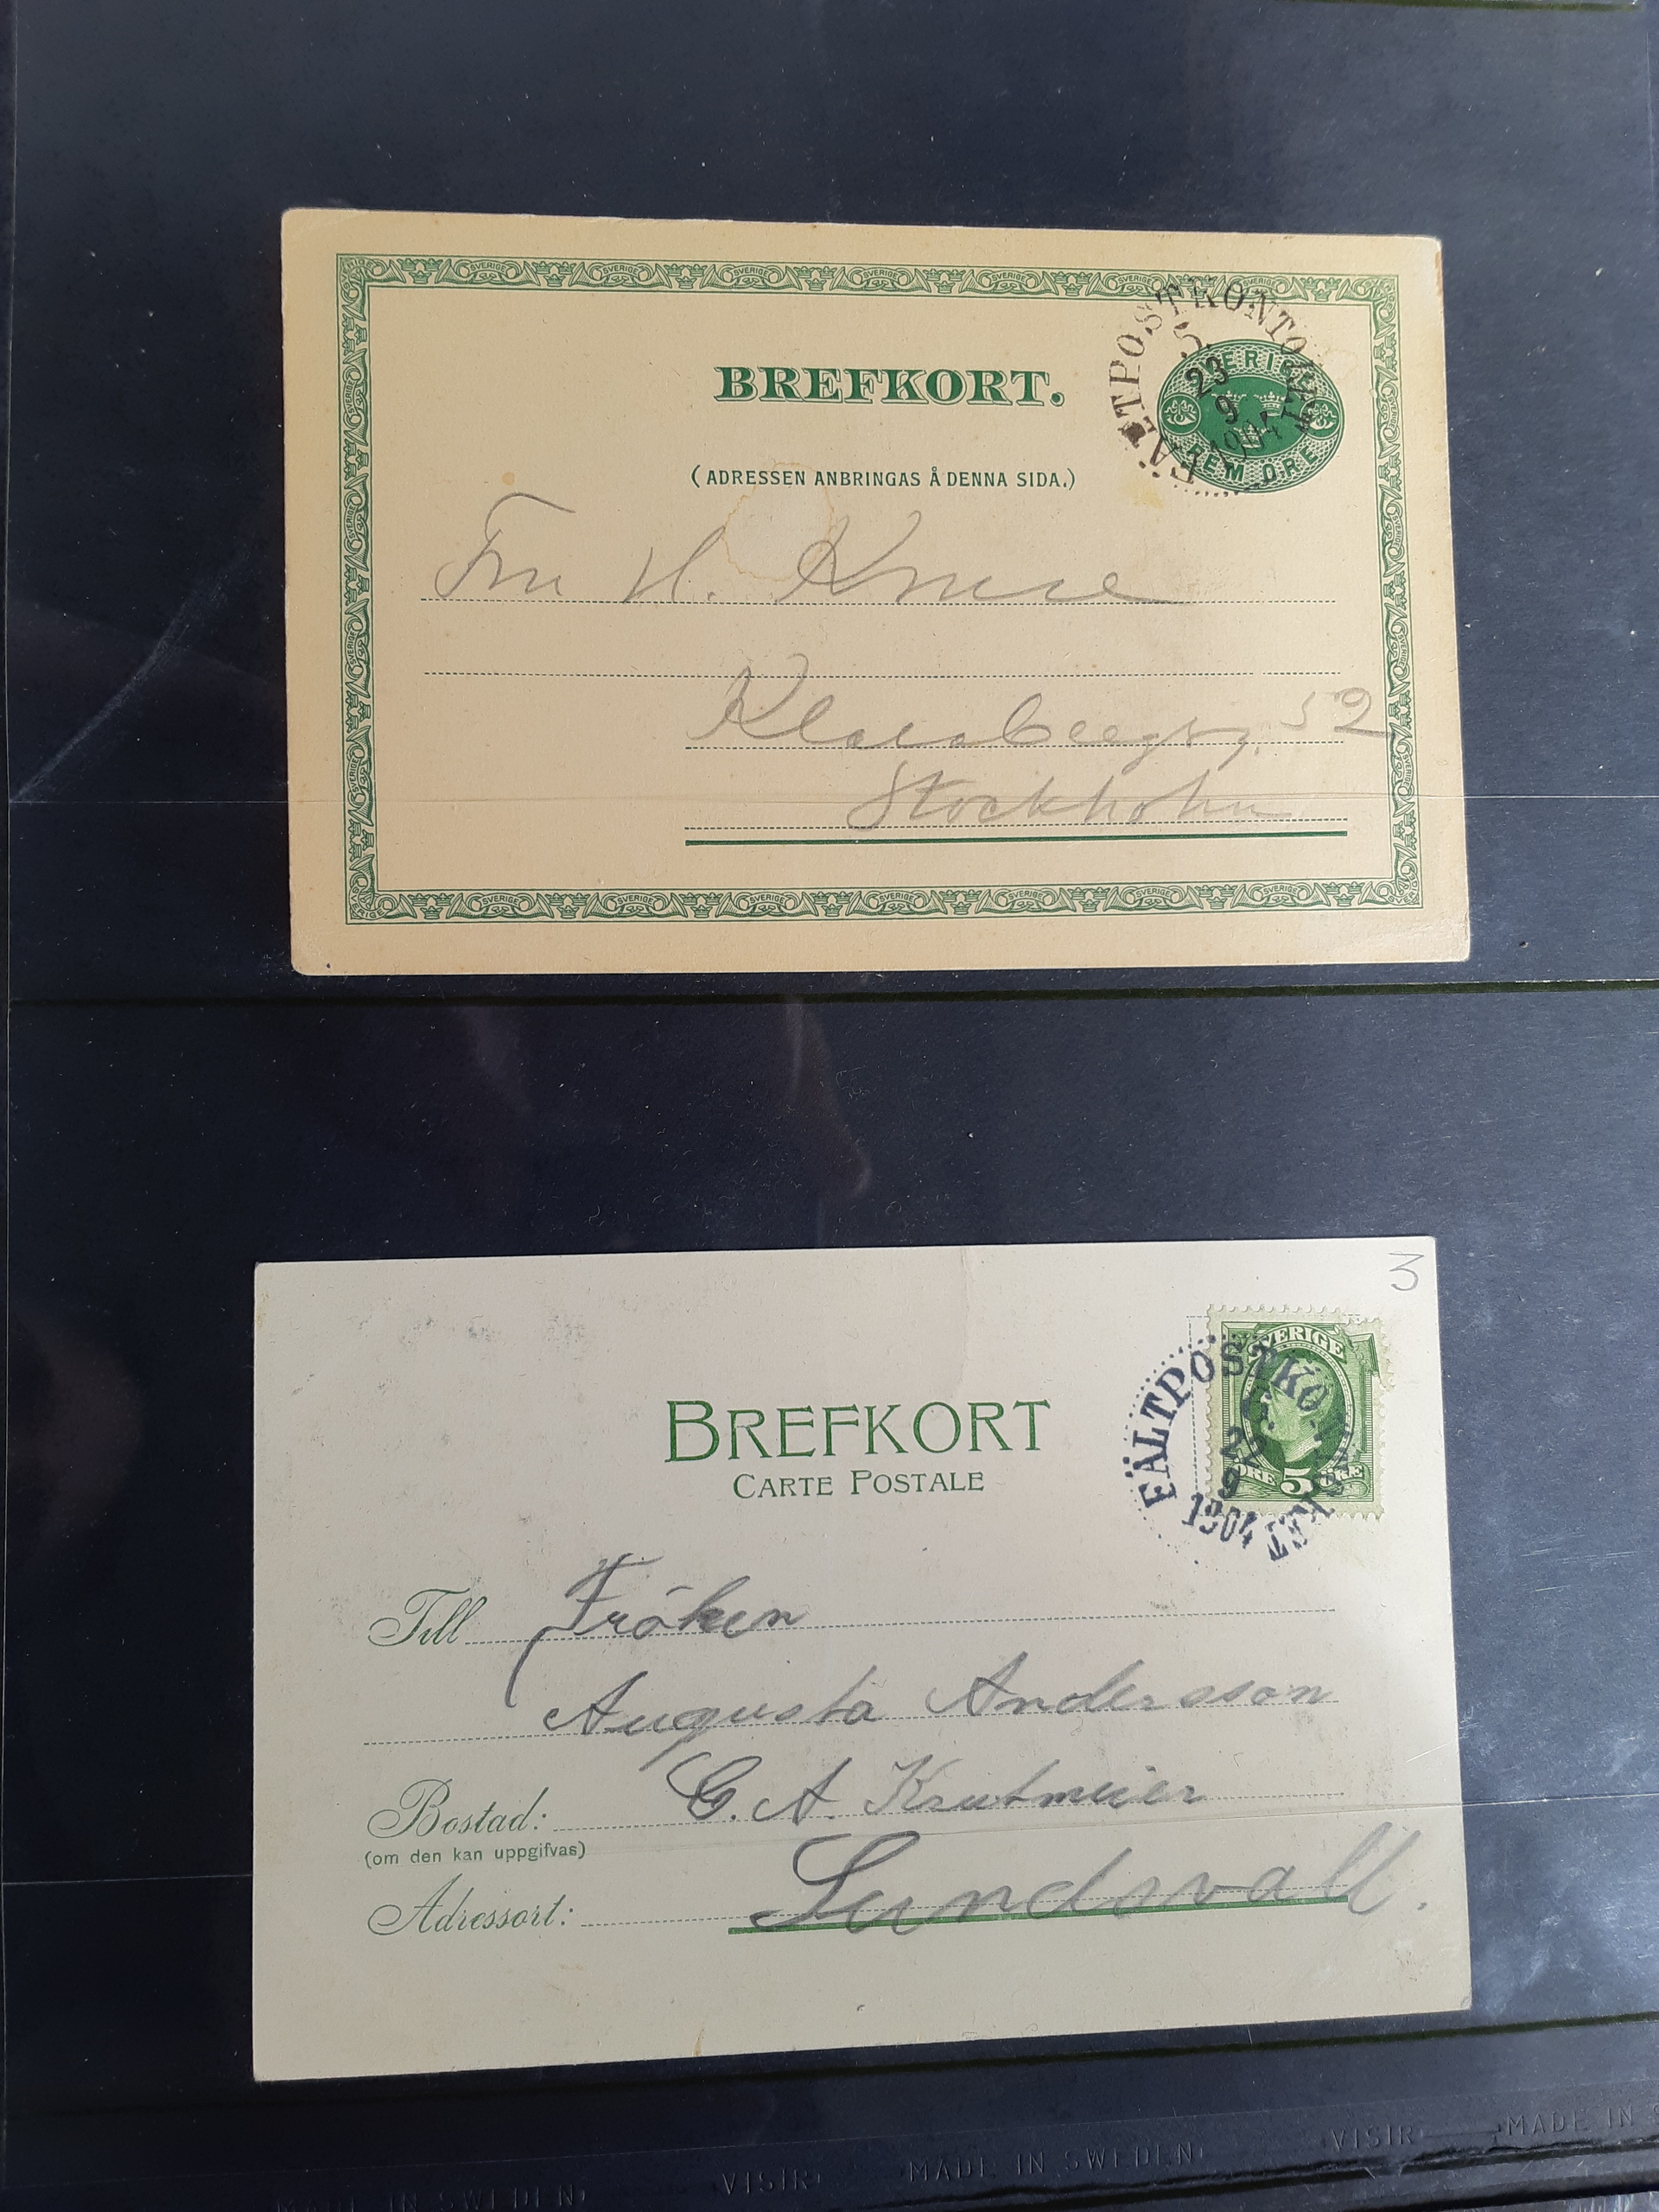 BREFKORT.
(ADRESSEN ANBRINGAS Å DENNA SIDA.)
SVERIGE
FEM ÖRE
FÄLTPOSTKONTORET
5.
23
9
1904
Fru H. Kruse
Klarabergsg. 52
Stockholm
3
BREFKORT
CARTE POSTALE
SVERIGE
ÖRE 5 ÖRE
FÄLTPOSTKO
22
9
1904
Till Fröken
Augusta Andersson
Bostad: C. A. Krutmeier
(om den kan uppgifvas)
Adressort: Sundsvall.
MADE IN SWEDEN VISIR MADE IN SWEDEN VISIR MADE IN